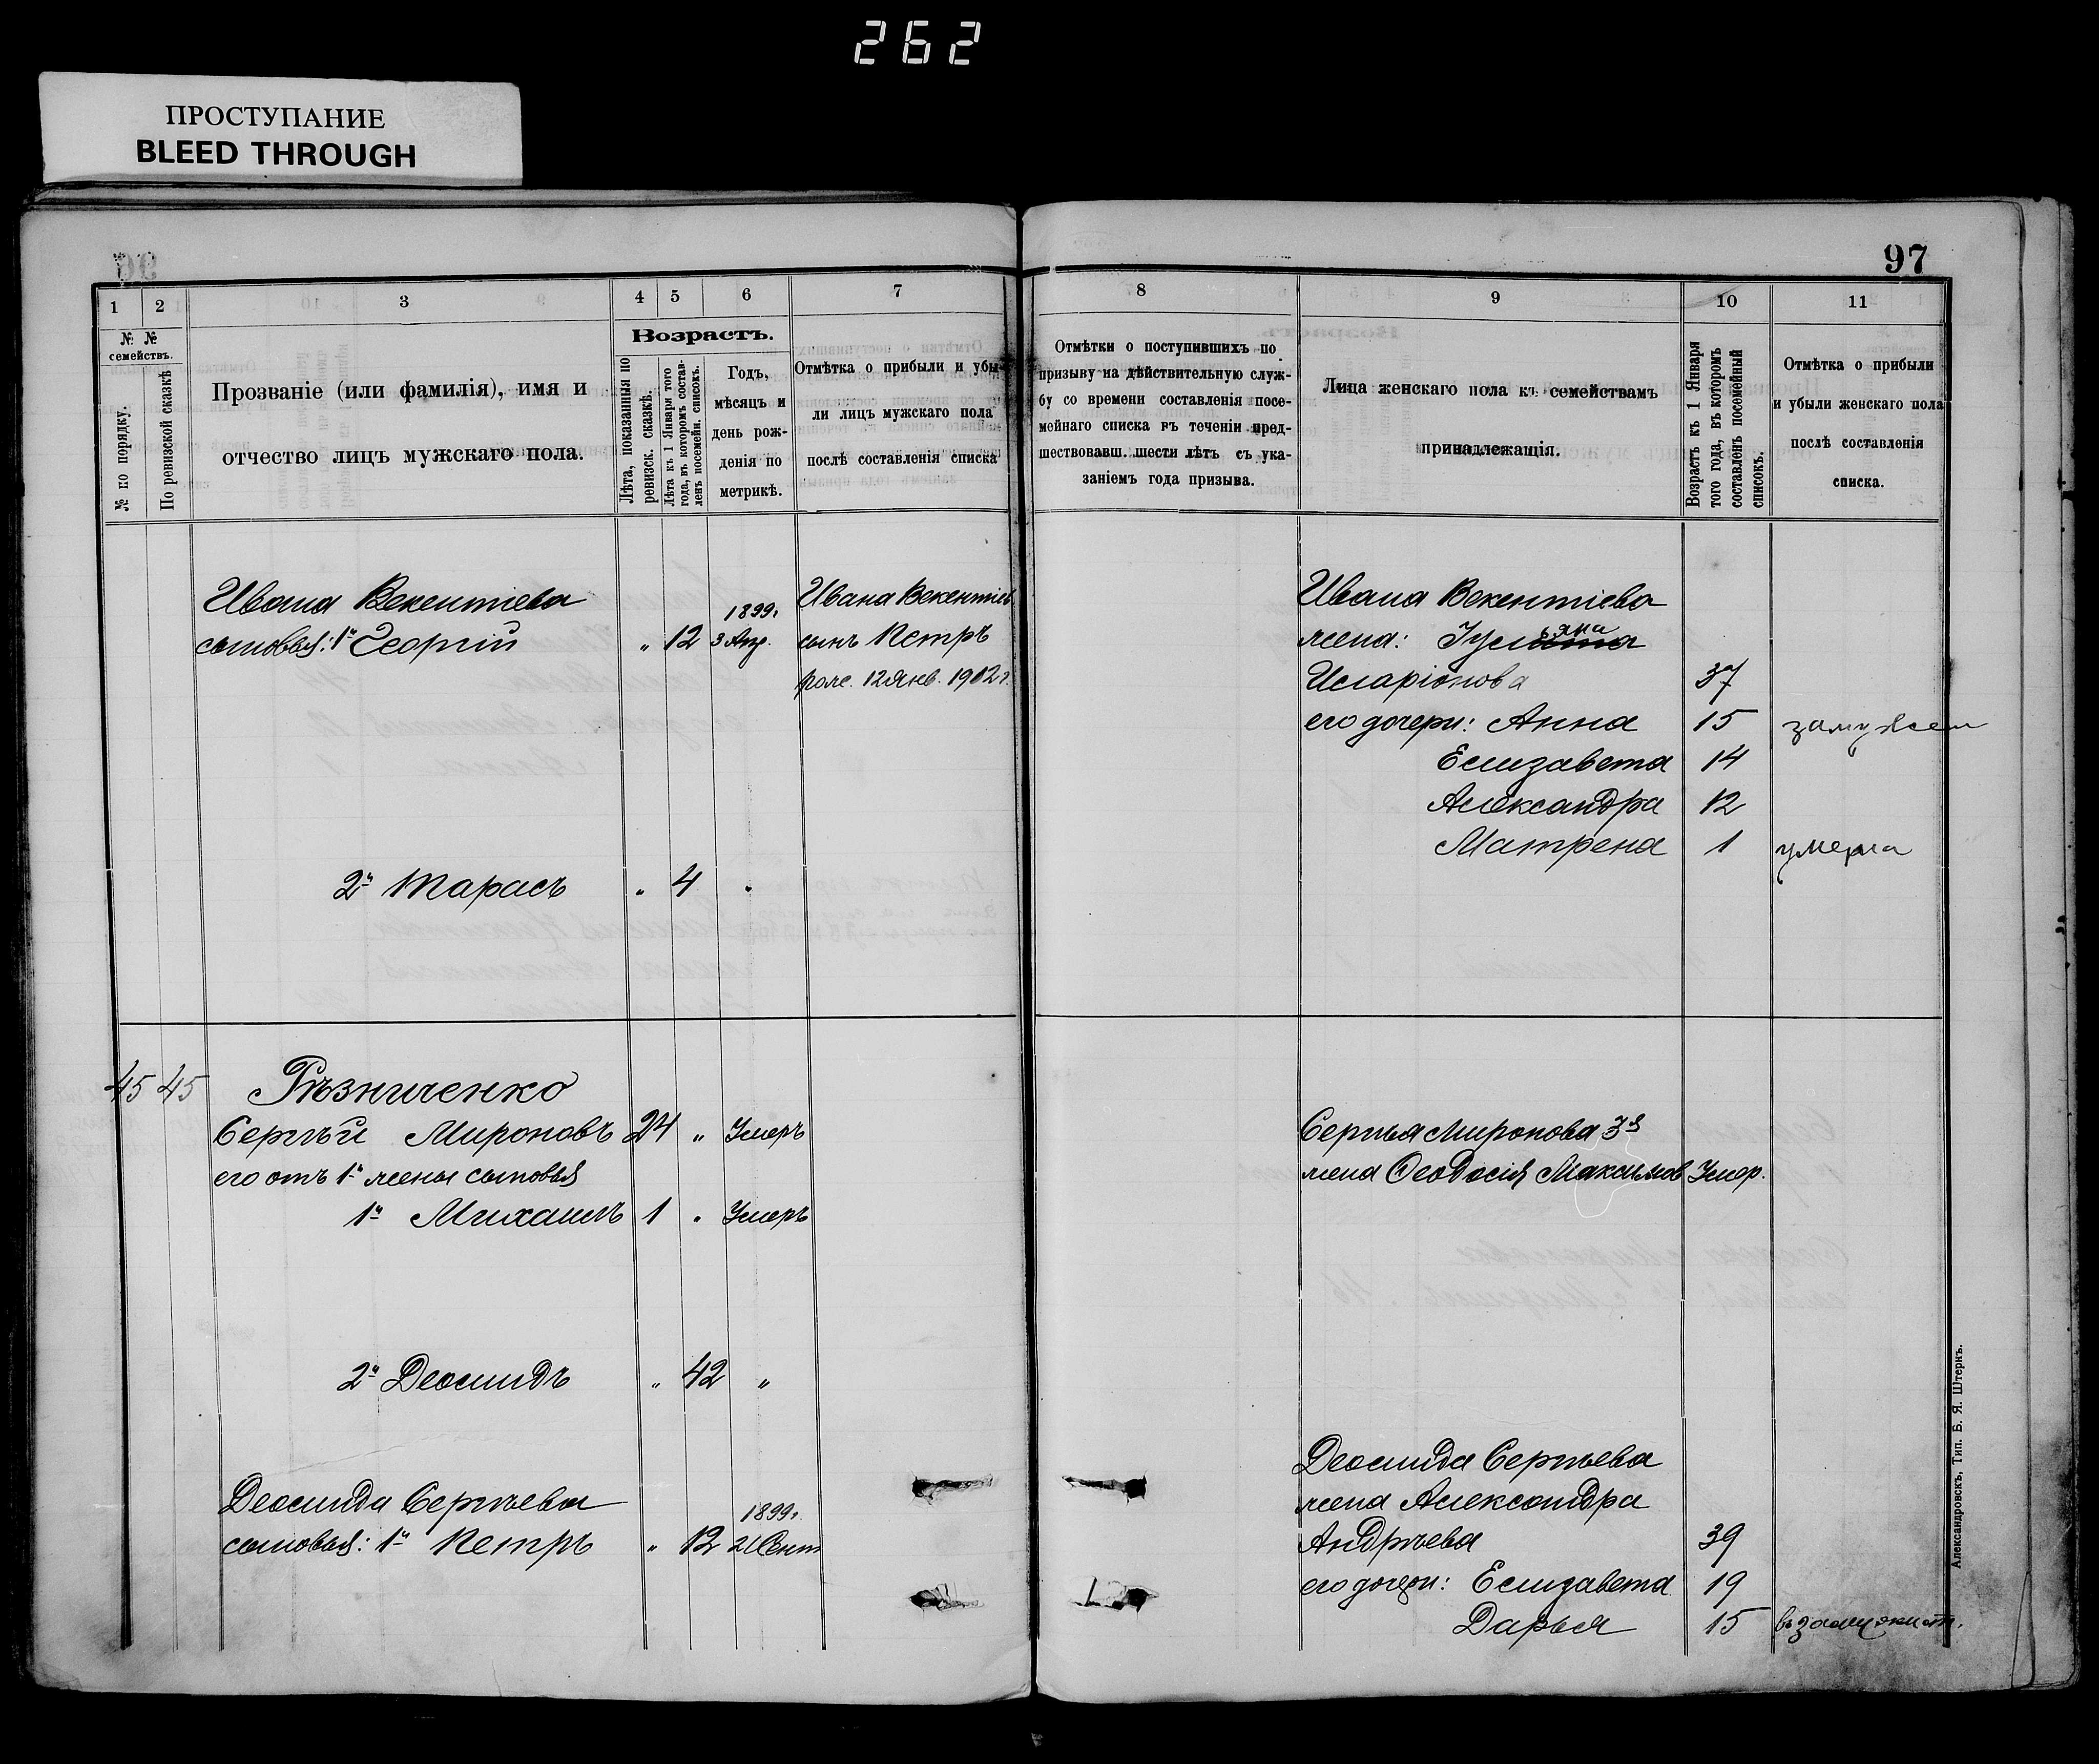 262
ПРОСТУПАНИЕ
BLEED THROUGH
97
1 2 3 4 5 6 7
№ № семействъ.
№ по порядку.
По ревизской сказкѣ
Прозваніе (или фамилія), имя и
отчество лицъ мужскаго пола.
Возрастъ.
Лѣта, показанныя по
ревизск. сказкѣ.
Лѣта къ 1 Января того
года, въ которомъ состав-
ленъ посемейн. списокъ.
Годъ,
мѣсяцъ и
день рож-
денія по
метрикѣ.
Отмѣтка о прибыли и убы-
ли лицъ мужскаго пола
послѣ составленія списка
8 9 10 11
Отмѣтки о поступившихъ по
призыву на дѣйствительную служ-
бу со времени составленія посе-
мейнаго списка въ теченіи пред-
шествовавш. шести лѣтъ съ ука-
заніемъ года призыва.
Лица женскаго пола къ семействамъ
принадлежащія.
Возрастъ къ 1 Января
того года, въ которомъ
составленъ посемейный
списокъ.
Отмѣтка о прибыли
и убыли женскаго пола
послѣ составленія
списка.
Ивана Векентіева
сыновья: 1й Георгій " 12 1899г. 3 Апр.
Ивана Векентіев
сынъ Петръ
рож. 12 Янв. 1912 г.
2й Тарасъ " 4 "
45 45 Рѣзниченко
Сергѣй Мироновъ 24 " Умеръ
его отъ 1й жены сыновья
1й Михаилъ 1 " Умеръ
2й Леонидъ " 42 "
Леонида Сергѣева
сыновья: 1й Петръ " 12 1899г. 21 Сент
Ивана Векентіева
жена:
Иларіонова 37
его дочери: Анна 15 замужем
Елизавета 14
Александра 12
Матрена 1 умерла
Сергѣя Миронова 3я
жена Ѳеодосія Максимов Умер.
Леонида Сергѣева
жена Александра
Андрѣева 39
его дочери: Елизавета 19
Дарья 15 въ замужест.
Александровскъ, Тип. Б. Я. Штернъ.